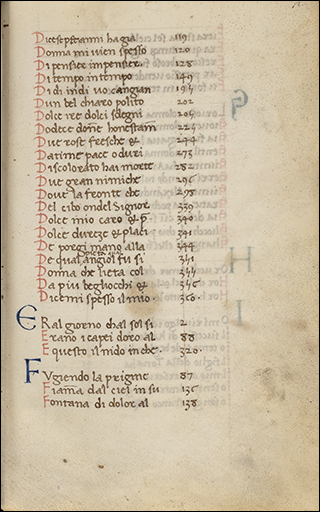 Dicesepteanni ha gia 119
Donna mi vien spesso 120
Di pensier in pensier. 128
Di tempo in tempo 149
Di di in di uo cangian 194
Dun bel chiaro polito 202
Dolce ire dolci sdegni 204
Dodece donne honestam 224
Due rose fresche & 244
Datime pace o duri 273
Discolorato hai morte 282
Due gran nimiche 296
Doue la fronte che 298
Del cibo onde l signor 339
Dolce mio caro & p. 340
Dolce dureze & placi 341
De porgi mano alla 344
De qual pieta angiol fu si 341
Donna che lieta col 344
Da piu begliocchi & 346
Dicemi spesso il mio. 360.
E Ral giorno chal sol si 2
Erano i capei doro al 88
E questo il nido in che. 320.
F Vgiendo la prigine 87
Fiama dal ciel in su 136
Fontana di dolor al 138
G
H
I